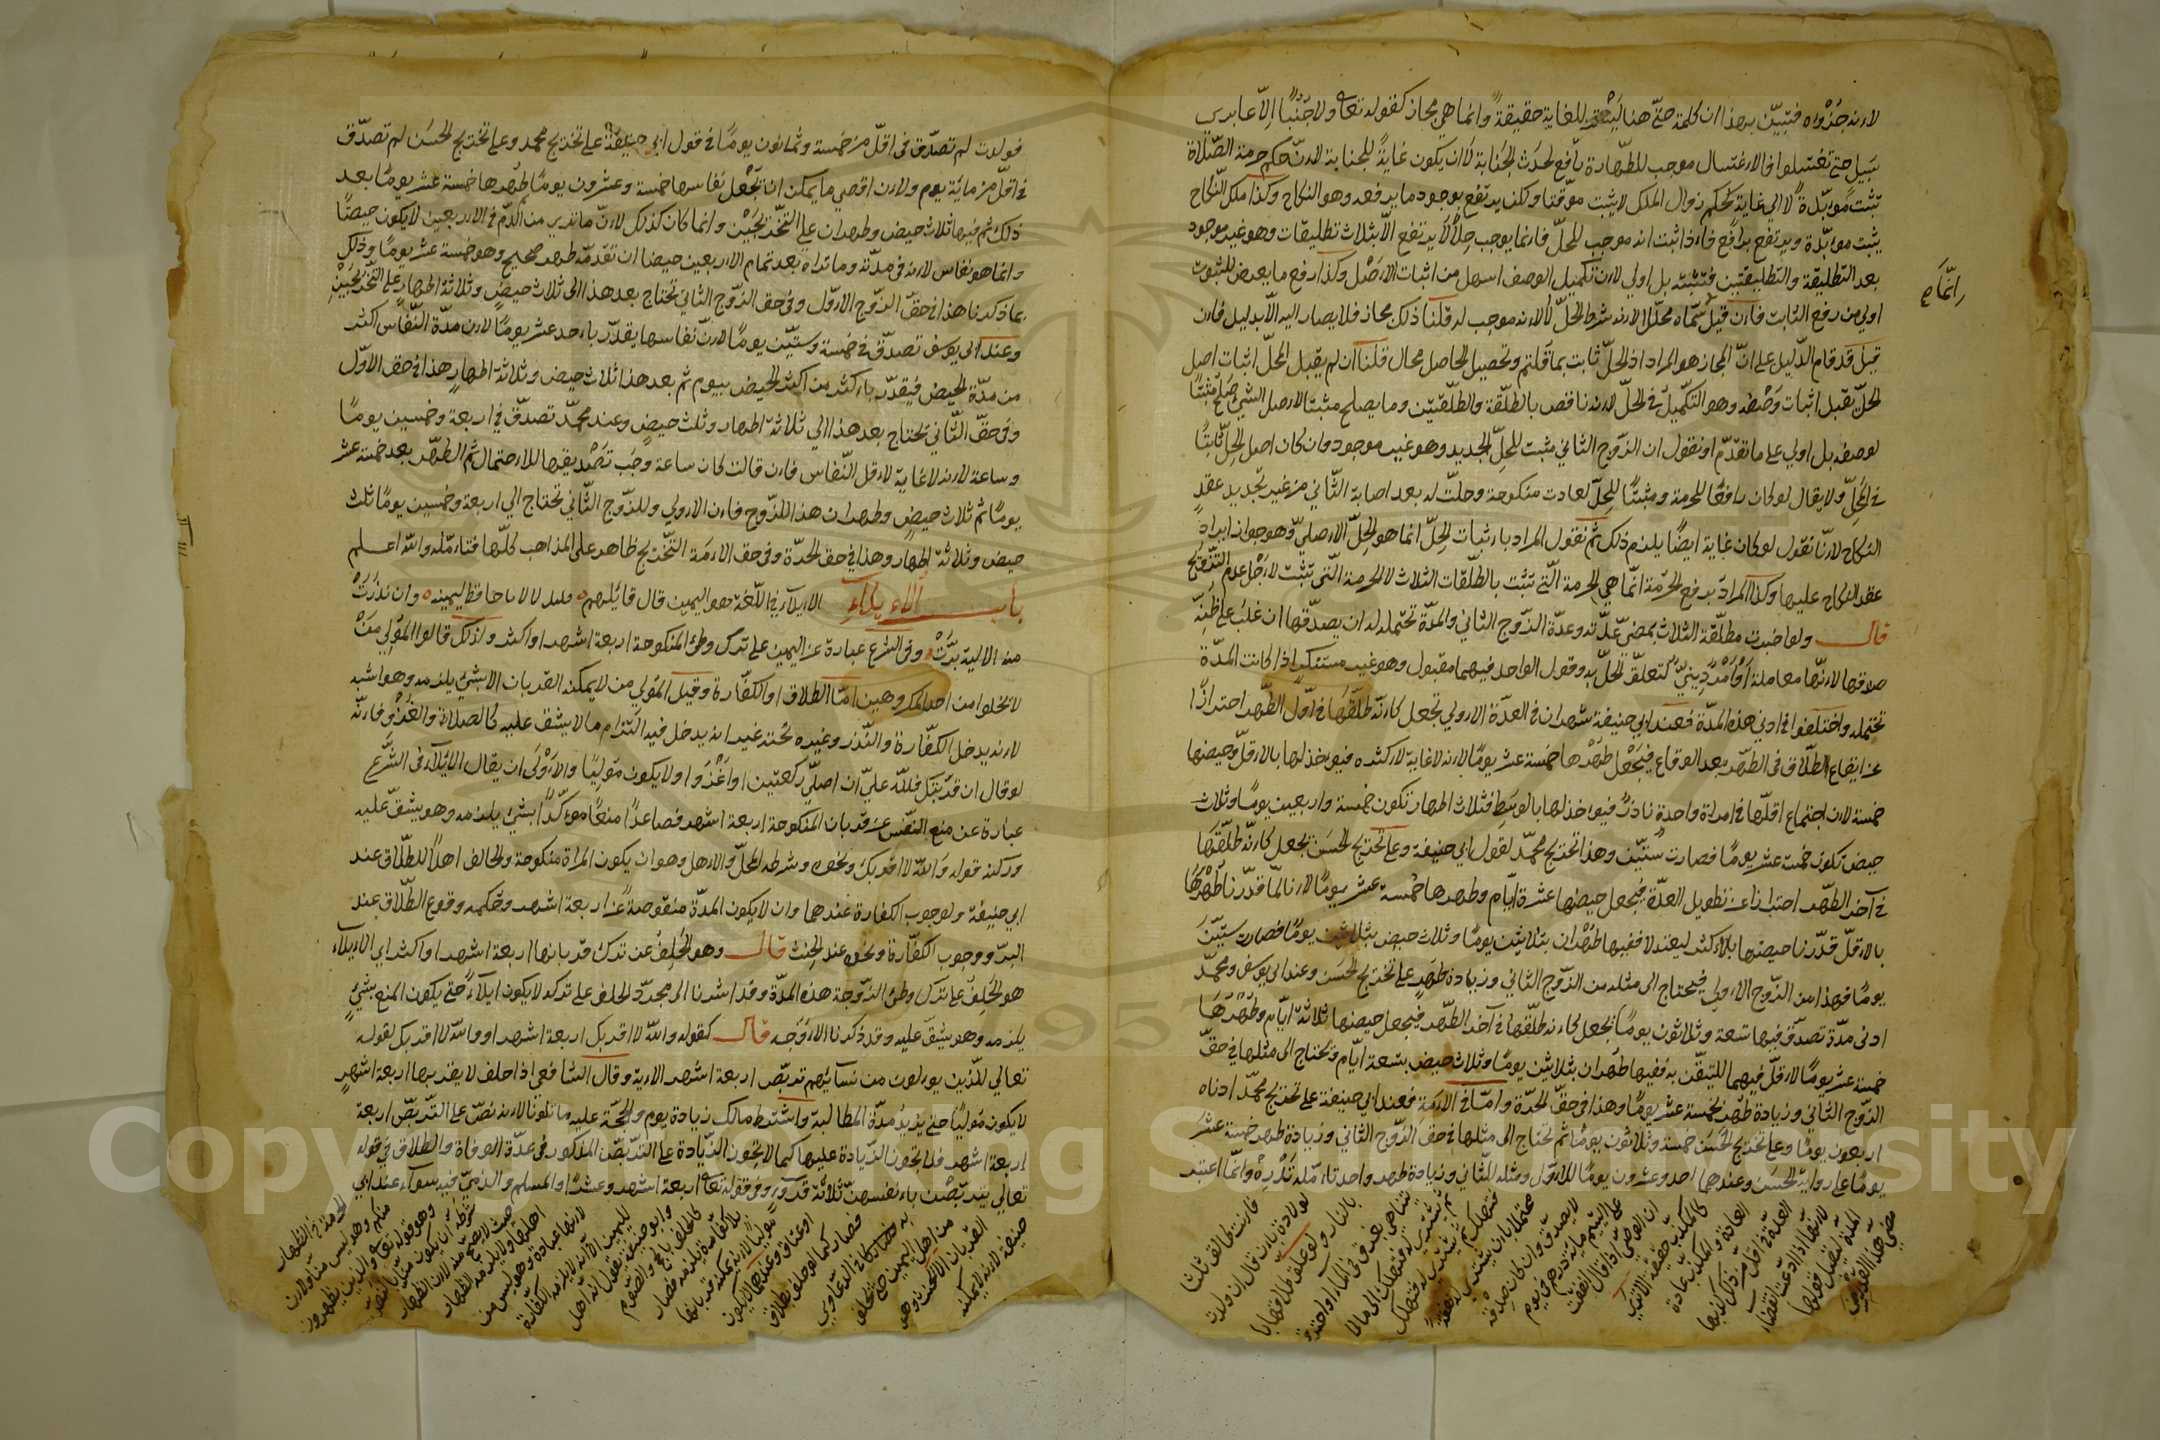 لانه جزؤاه فتبيّن بهذا ان كلمة حتّى هنا ليست للغاية حقيقةً وانما هي مجاز كقوله تعالى ولا جنبًا الّا عابرى
سبيل حتّى تغتسلوا فالاغتسال موجب للطهارة رافع لحدث الجنابة لا ان يكون غايةً للجنابة لانّ حكم حرمة الصّلاة
تثبت مؤبّدةً لا الى غاية كحكم زوال الملك لا يثبت موقتا ولكن يرتفع بوجود ما يرفعه وهو النكاح وكذا ملك النّكاح
يثبت مؤبّدة ويرتفع برافع فاذا ثبت انه موجب للحلّ فانما يوجب حلّا لا يرتفع الّا بثلاث تطليقات وهو غير موجود
بعد التطليقة والتطليقتين فتثبته بل اولى لان تكميل الوصف اسهل من اثبات الاصل وكذا رفع ما يعرض للثبوت
اولى من رفع الثابت فان قيل سمّاه محلّلا لانه شرط الحلّ لا لانه موجب له قلنا ذلك مجاز فلا يصار اليه الّا بدليل فان
قيل قد قام الدّليل على انّ المجاز هو المراد اذ الحلّ ثابت بما قلتم وتحصيل الحاصل محال قلنا ان لم يقبل المحلّ اثبات اصل
الحلّ تقبل اثبات وصفه وهو التكميل فى الحلّ لانه ناقص بالطلّقة والطلّقتين وما يصلح مثبتا لاصل الشئ صلح مثبتًا
لوصفه بل اولى على ما تقدّم او نقول ان الزّوج الثاني مثبت للحلّ الجديد وهو غير موجود وان كان اصل الحلّ ثابتًا
فى الحلّ ولا يقال لو كان رافعًا للحرمة ومثبتًا للحلّ لعادت منكوحة وحلّت له بعد اصابة الثّاني من غير تجديد عقد
النكاح لانّا نقول لو كان غاية ايضًا يلزم ذلك ثم نقول المراد باثبات الحلّ انما هو الحلّ الاصليّ وهو جواز ايراد
عقد النكاح عليها وكذا المراد برفع الحرمة انّما هي الحرمة الّتي تثبت بالطلّقات الثلاث لا الحرمة الّتي تثبت لاجل عدم التزويج
قال ولو اخبرت مطلّقة الثلاث بمضيّ عدّته وعدّة الزّوج الثاني والمدّة تحتمله له ان يصدّقها ان غلب على ظنّه
صدقها لانّها معاملة او امر دينيّ لتعلّق الحلّ به وقول الواحد فيهما مقبول وهو غير مستنكر اذا كانت المدّة
تحتمله واختلفوا فى ادنى هذه المدّة فعند ابي حنيفة شهران فى العدّة الاولى تجعل كانّه طلّقها فى اوّل الطّهر احترازًا
عن ايقاع الطّلاق فى الطّهر بعد الوقاع فيجعل طهرها خمسة عشر يومًا لانه لا غاية لاكثره فيؤخذ لها بالاقلّ وحيضها
خمسة لان اجتماع اقلّها فى امراة واحدة نادرٌ فيؤخذ لها بالوسط فثلاث اطهار تكون خمسة واربعين يومًا وثلاث
حيض تكون خمسة عشر يومًا فصارت ستّين وهذا تخريج محمّد لقول ابي حنيفة وعلى تخريج الحسن تجعل كانّه طلّقها
فى آخر الطّهر احترازا عن تطويل العدّة فيجعل حيضها عشرة ايّام وطهرها خمسة عشر يومًا لانا لمّا قدّرنا طهرها
بالاقلّ قدّرنا حيضها بالاكثر ليعتدلا ففيها طهران بثلاثين يومًا وثلاث حيض بثلاثين يومًا فصارت ستّين
يومًا فهذا من الزّوج الاول فيحتاج الى مثله من الزّوج الثاني وزيادة طهر على تخريج الحسن وعند ابي يوسف ومحمّد
ادنى مدّة تصدّق فيها تسعة وثلاثون يومًا تجعل كانه طلّقها فى آخر الطّهر فيجعل حيضها ثلاثة ايّام وطهرها
خمسة عشر يومًا لاقلّ فيهما للتيقّن به ففيها طهران بثلاثين يومًا وثلاث حيض بتسعة ايّام وتحتاج الى مثلها فى حقّ
الزّوج الثاني وزيادة طهر خمسة عشر يومًا وهذا فى حقّ الحرّة وامّا فى الامة فعند ابي حنيفة على تخريج محمّد ادناه
اربعون يومًا وعلى تخريج الحسن خمسة وثلاثون يومًا ثم تحتاج الى مثلها فى حق الزّوج الثاني وزيادة طهر خمسة عشر
يومًا على رواية الحسن وعندهما احد وعشرون يومًا للاوّل ومثله للثّاني وزيادة طهر واحد تامّله تدره وانّما اعتبر
مضي هذا التقدير من
المدّة ليقبل قولها
لانّها اذا ادّعت انقضاء
العدّة فى اقلّ من ذلك كذبها
العادة والمكذّب عادة
كالمكذّب حقيقة الا ترى
ان الوصيّ اذا قال انفقت
على اليتيم مائة درهم فى يوم
لا يصدّق وان كان صدقه
محتملا بان يشتري له نفقة
فتهلك ثم يشتري له فتهلك
ثم يشتري له فتهلك الى ما لا
يتناهى بغرق فى الماء او احترق
بالنار ولو علّق طلاقها با
لولادة بان قال ان ولدت
فانت طالق ثلثا
انّما ع
فولدت لم تصدّق فى اقلّ من خمسة وثمانون يومًا فى قول ابي حنيفة على تخريج محمد وعلى تخريج الحسن لم تصدّق
فى اقلّ من مائة يوم ولان اقصى ما يمكن ان تجعل نفاسها خمسة وعشرون يومًا طهرها خمسة عشر يومًا بعد
ذلك ثم فيها ثلاث حيض وطهران على التخريجين وانما كان كذلك لانّ ما ترى من الدّم فى الاربعين لا يكون حيضًا
وانما هو نفاس لانه فى مدّته وما تراه بعد تمام الاربعين حيضا ان تقدّمه طهر صحيح وهو خمسة عشر يومًا وذلك
بما ذكرنا هذا فى حقّ الزّوج الاوّل وفى حق الزّوج الثاني تحتاج بعد هذا الى ثلاث حيض وثلاثة اطهار على التّخريجين
وعند ابي يوسف تصدّق فى خمسة وستّين يومًا لانّ نفاسها يقدّر باحد عشر يومًا لان مدّة النّفاس اكثر
من مدّة الحيض فيقدّر باكثر من اكثر الحيض بيوم ثم بعد هذا ثلاث حيض وثلاثة اطهار هذا فى حق الاوّل
وفى حقّ الثّاني تحتاج بعد هذا الى ثلاثة اطهار وثلث حيض وعند محمّد تصدّق فى اربعة وخمسين يومًا
وساعة لانه لا غاية لاقل النّفاس فان قالت كان ساعة وجب تصديقها للاحتمال ثم الطهّر بعد خمسة عشر
يومًا ثم ثلاث حيض وطهران هذا للزّوج فان الاولى وللزّوج الثّاني تحتاج الى اربعة وخمسين يومًا ثلث
حيض وثلاثة اطهار وهذا فى حق الحرّة وفى حق الامة التّخريج ظاهر على المذاهب كلّها فتامّله والله اعلم
باب الايلاء الايلاء فى اللّغة هو اليمين قال قائلهم قليل الالايا حافظ ليمينه وان نذرت
منه الالية برّت وفى الشرع عبارة عن اليمين على ترك وطئ المنكوحة اربعة اشهر او اكثر ولذلك قالوا المولى من
لا يخلوا من احد المكروهين امّا الطلاق او الكفّارة وقيل المولى من لا يمكنه القربان الا بشئ يلزمه وهو اشبه
لانه يدخل الكفّارة والنّذر وغيره تحته غير انه يدخل فيه التزام ما لا يشق عليه كالصلاة والغزو فانّه
لو قال ان قربتك فللّه عليّ ان اصلّي ركعتين او اغزوا ولا يكون موليًا والاولى ان يقال الايلاء فى الشّرع
عبارة عن منع النفس عن قربان المنكوحة اربعة اشهر فصاعدًا منعًا مؤكّدًا بشئ يلزمه وهو يشقّ عليه
وركنه قوله والله لا اقربك ونحوه وشرطه المحلّ والاهل وهو ان يكون المراة منكوحة والحالف اهلًا للطّلاق عند
ابي حنيفة ولوجوب الكفارة عندهما وان لا يكون المدة منقوصةً عن اربعة اشهر وحكمه وقوع الطّلاق عند
البرّ ووجوب الكفّارة ونحوه عند الحنث قال وهو الحلف عن ترك قربانها اربعة اشهر او اكثر اي الايلاء
هو الحلف على ترك وطئ الزّوجة هذه المدّة وقد اشرنا الى مجرّد الحلف على تركه لا يكون ايلاءً حتّى يكون المنع بشئ
يلزمه وهو يشقّ عليه وقد ذكرنا الاوجه قال كقوله والله لا اقربك اربعة اشهر او والله لا اقربك لقوله
تعالى للّذين يؤلون من نسائهم تربّص اربعة اشهر الاية وقال الشافعي اذا حلف لا يقربها اربعة اشهر
لا يكون موليًا حتى يزيد مدّة المطالبة واشترط مالك زيادة يوم والحجّة عليه ما تلونا لانه نصّ على التّربّص اربعة
اربعة اشهر فلا تجوز الزّيادة عليها كما لا تجوز الزّيادة على التربّص المذكور فى عدّة الوفاة والطلاق فى قوله
تعالى يتربّصن بانفسهنّ ثلاثة قروء وفى قوله تعالى اربعة اشهر وعشرًا والمسلم والذميّ فيه سواء عند ابي
حنيفة لانه لا يمكنه
القربان الا بالحنث وهو
من اهل اليمين حتّى يحلف
به فصار كما فى الدّعاوي
فصار كما لو حلف بطلاق
او عتاق وعندهما لا يكون
موليا لانه يمكنه قربانها
بلا كفّارة يلزمه فصار
كالحلف بالحج والصّوم
وابو حنيفة يقول انّه اهل
لليمين الّا انه لا يلزمه الكفّارة
لانها عبادة وهو ليس من
اهلها ولا يلزمه الظهار
حيث لا يصحّ منه لان الظهار
شرطه ان يكون منّا بالنصّ
وهو قوله تعالى والذين يظهرون
منكم وهو ليس منّا ولان
الحرمة فى الظهار
Copyright © King Saud University